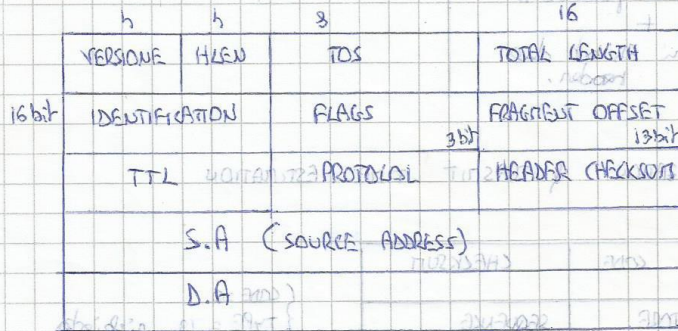 4 4 8 16
VERSIONE HLEN TOS TOTAL LENGTH
16 bit IDENTIFICATION FLAGS 3bit FRAGMENT OFFSET 13bit
TTL PROTOCOL HEADER CHECKSUM
S.A (SOURCE ADDRESS)
D.A